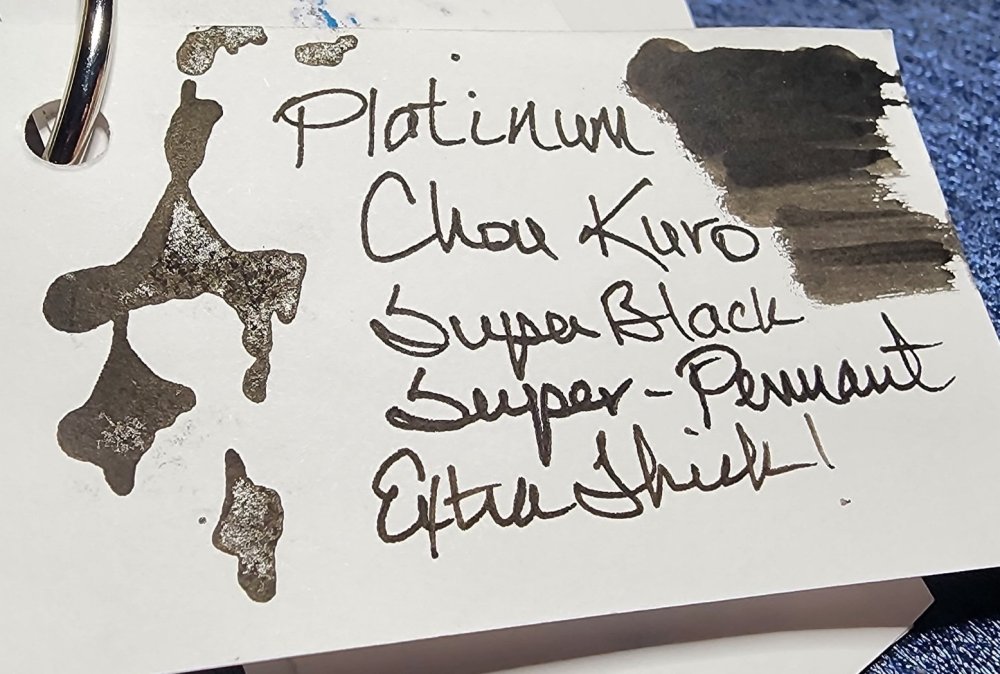 Platinum
Chou Kuro
Super Black
Super-Permnant
Extra Thick!